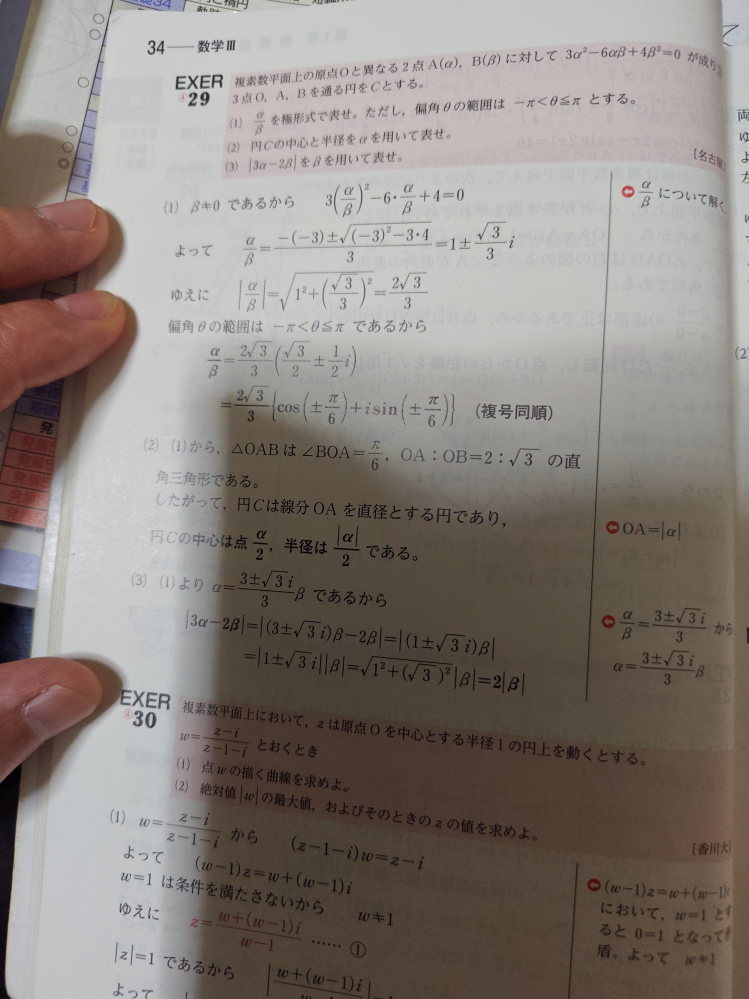 34 数学Ⅲ
EXER 29
複素数平面上の原点Oと異なる2点A(α), B(β)に対して 3α²−6αβ+4β²=0 が成り
3点O, A, Bを通る円をCとする。
(1) α/β を極形式で表せ。ただし,偏角θの範囲は −π<θ≦π とする。
(2) 円Cの中心と半径をαを用いて表せ。
(3) |3α−2β|をβを用いて表せ。
[名古屋
(1) β≠0 であるから 3(α/β)²−6・α/β+4=0
α/β について解く
よって α/β=(−(−3)±√((−3)²−3・4))/3=1±(√3/3)i
ゆえに |α/β|=√(1²+(√3/3)²)=2√3/3
偏角θの範囲は −π<θ≦π であるから
α/β=2√3/3(√3/2±1/2 i)
=2√3/3{cos(±π/6)+i sin(±π/6)} (複号同順)
(2) (1)から,△OABは∠BOA=π/6, OA:OB=2:√3 の直
角三角形である。
したがって,円Cは線分OAを直径とする円であり,
円Cの中心は点 α/2, 半径は |α|/2 である。
OA=|α|
(3) (1)より α=(3±√3 i)/3 β であるから
|3α−2β|=|(3±√3 i)β−2β|=|(1±√3 i)β|
=|1±√3 i||β|=√(1²+(√3)²)|β|=2|β|
α/β=(3±√3 i)/3 から
α=(3±√3 i)/3 β
EXER 30
複素数平面上において,zは原点Oを中心とする半径1の円上を動くとする。
w=(z−i)/(z−1−i) とおくとき
(1) 点wの描く曲線を求めよ。
(2) 絶対値|w|の最大値,およびそのときのzの値を求めよ。
[香川大
(1) w=(z−i)/(z−1−i) から (z−1−i)w=z−i
よって (w−1)z=w+(w−1)i
w=1 は条件を満たさないから w≠1
ゆえに z=(w+(w−1)i)/(w−1) …… ①
(w−1)z=w+(w−1)i
において,w=1 と
ると 0=1 となって
盾。よって w≠1
|z|=1 であるから
よって